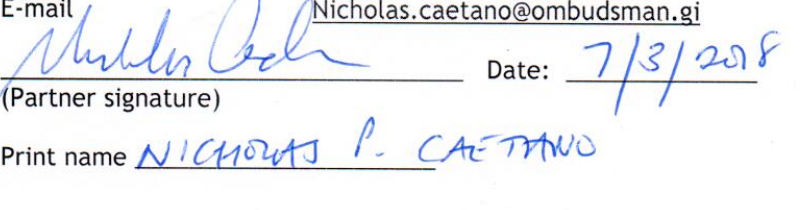 E-mail Nicholas.caetano@ombudsman.gi
Date: 7/3/2018
(Partner signature)
Print name NICHOLAS P. CAETANO